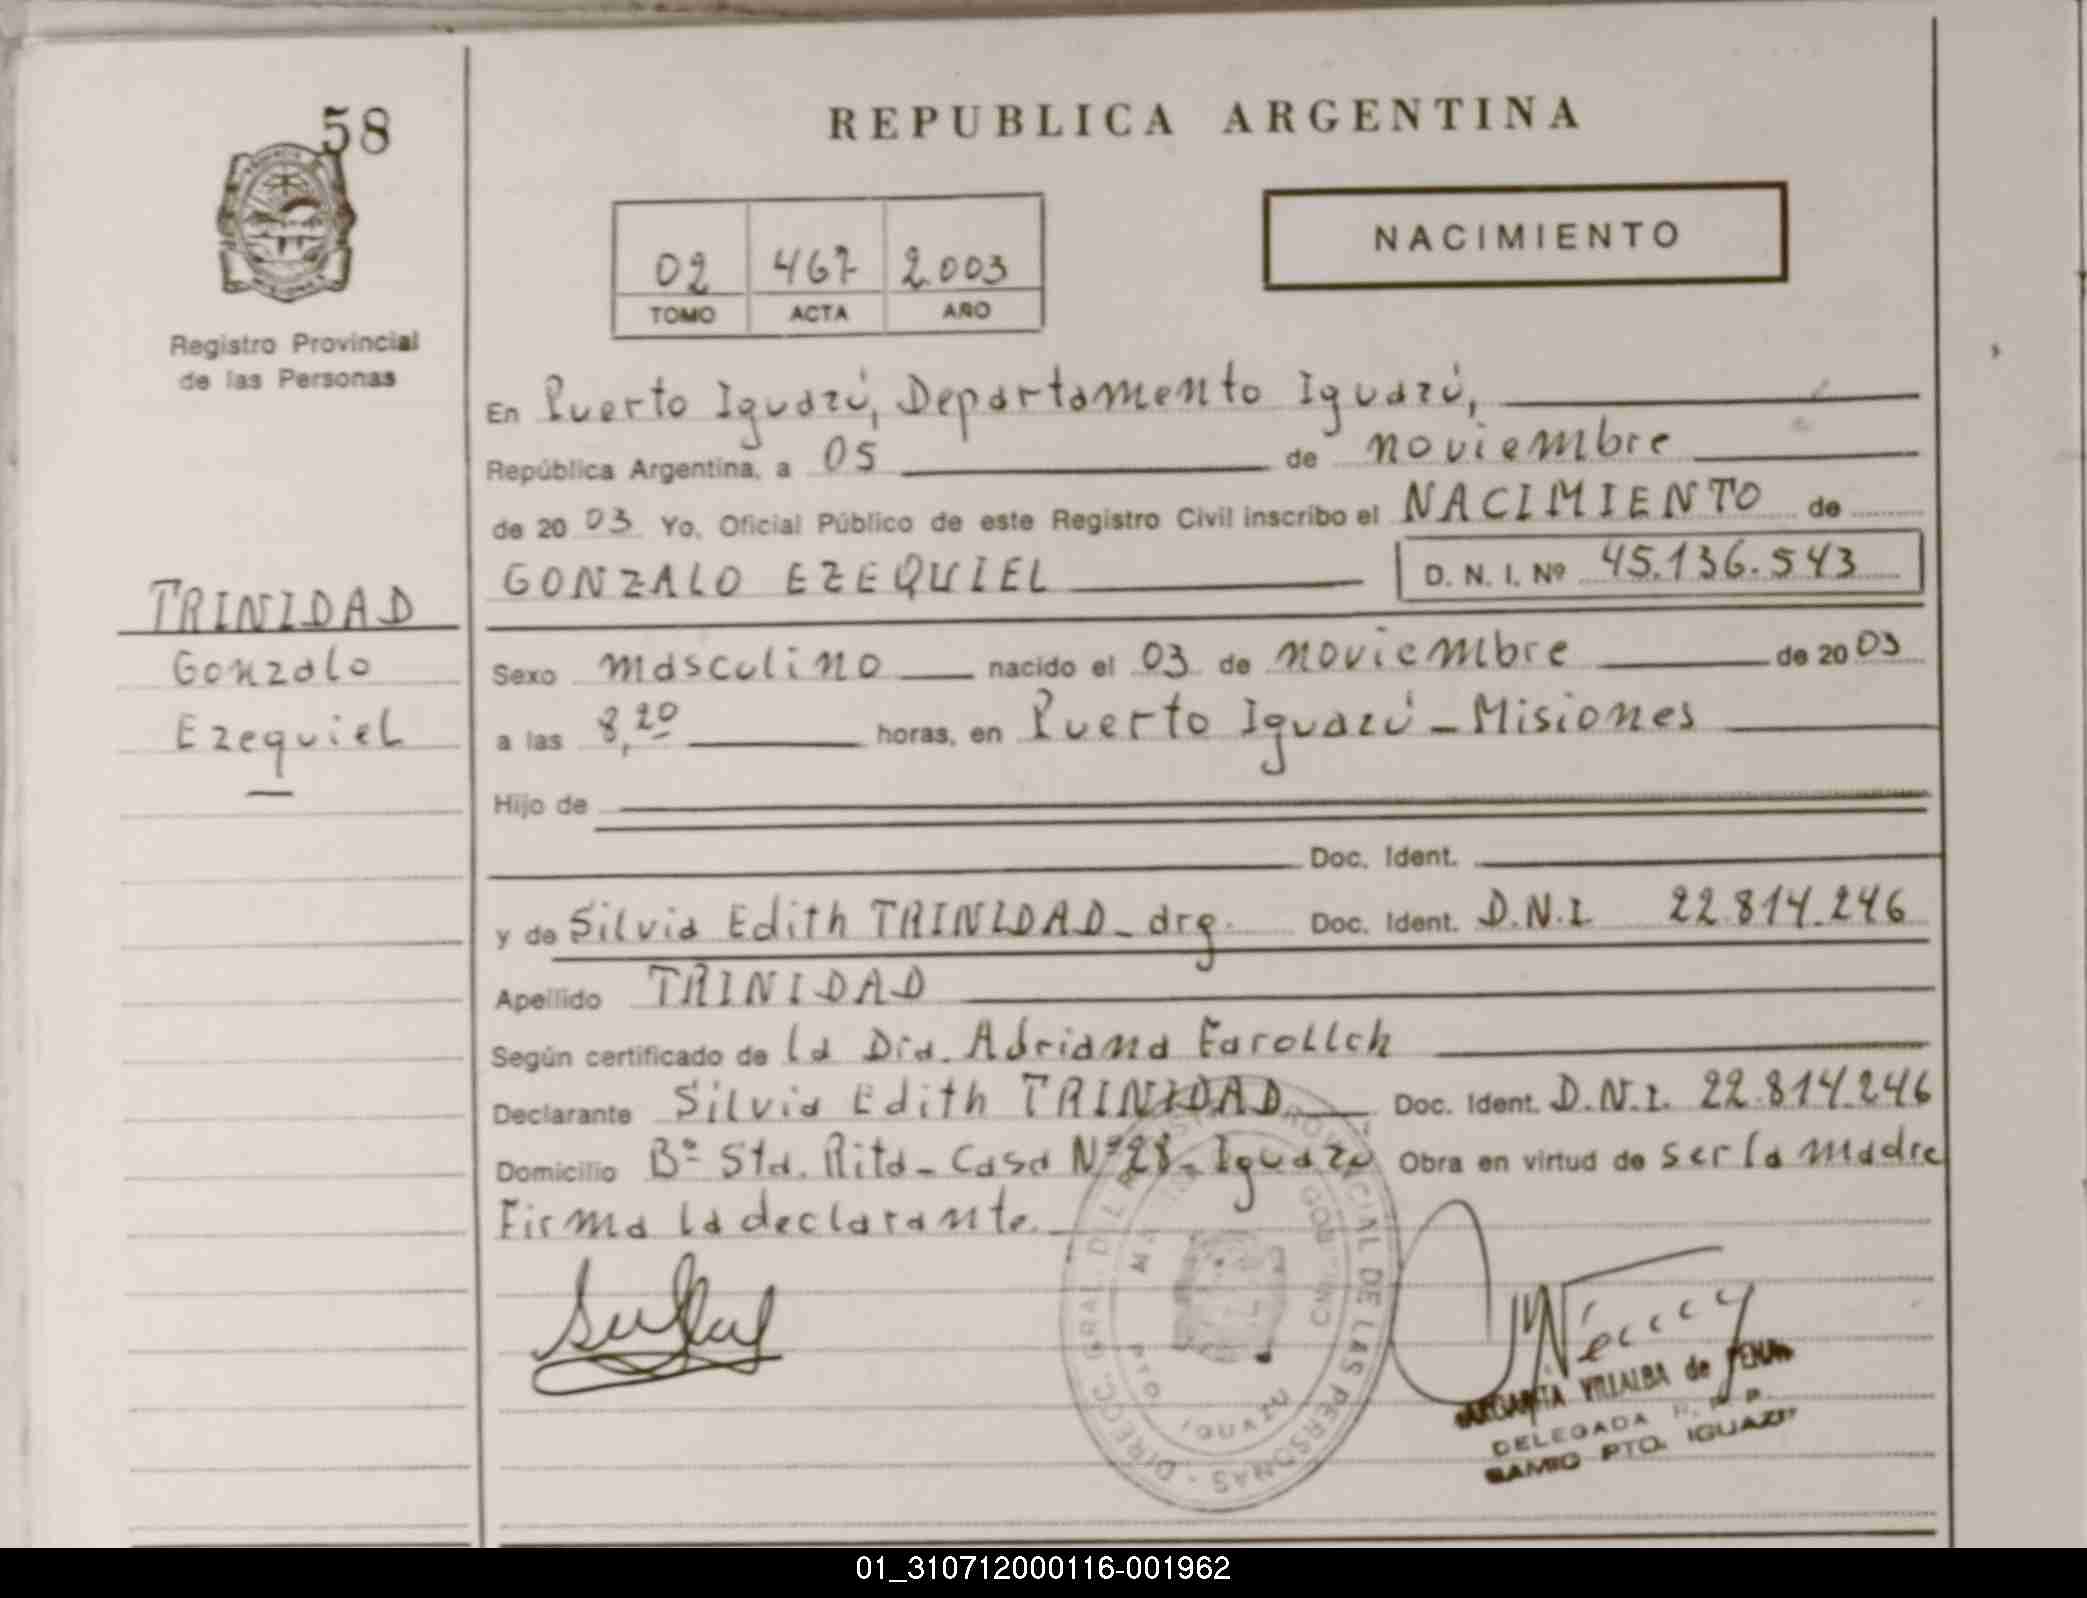 58
REPUBLICA ARGENTINA
NACIMIENTO
02 467 2.003
TOMO ACTA AÑO
Registro Provincial
de las Personas
En Puerto Iguazú, Departamento Iguazú,
República Argentina, a 05 de noviembre
de 2003 Yo, Oficial Público de este Registro Civil inscribo el NACIMIENTO de
GONZALO EZEQUIEL D. N. I. Nº 45.136.543
TRINIDAD
Gonzalo
Ezequiel
Sexo masculino nacido el 03 de noviembre de 2003
a las 8,20 horas, en Puerto Iguazú - Misiones
Hijo de
Doc. Ident.
y de Silvia Edith TRINIDAD - arg. Doc. Ident. D.N.I. 22.814.246
Apellido TRINIDAD
Según certificado de la Dra. Adriana
Declarante Silvia Edith TRINIDAD Doc. Ident. D.N.I. 22.814.246
Domicilio Bº Sta. Rita - Casa Nº 28 - Iguazú Obra en virtud de ser la madre
Firma la declarante.
DIRECC. GRAL. DEL REGISTRO PROVINCIAL DE LAS PERSONAS
PTO IGUAZU
VILLALBA de
DELEGADA
PTO. IGUAZU
01_310712000116-001962